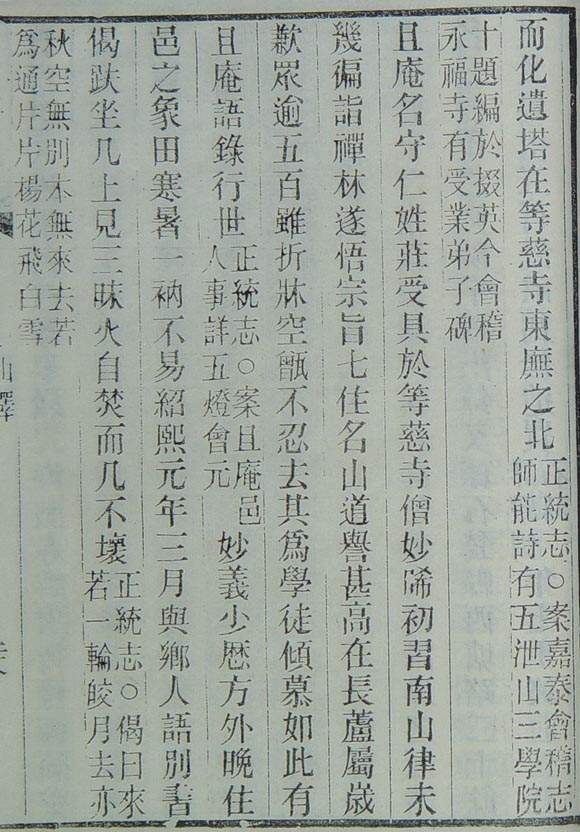 而化遺塔在等慈寺東廡之北
正統志○案嘉泰會稽志
師能詩有五泄山三學院
十題編於掇英今會稽
永福寺有受業弟子碑
且庵名守仁姓莊受具於等慈寺僧妙晞初習南山律未
幾徧詣禪林遂悟宗旨七住名山道譽甚高在長蘆屬歲
歉眾逾五百雖折牀空甑不忍去其爲學徒傾慕如此有
且庵語錄行世
正統志○案且庵邑
人事詳五燈會元
妙義少厯方外晚住
邑之象田寒暑一衲不易紹熙元年三月與鄉人語別書
偈趺坐几上見三昧火自焚而几不壞
正統志○偈曰來
若一輪皎月去亦
秋空無別本無來去若
爲通片片楊花飛白雪